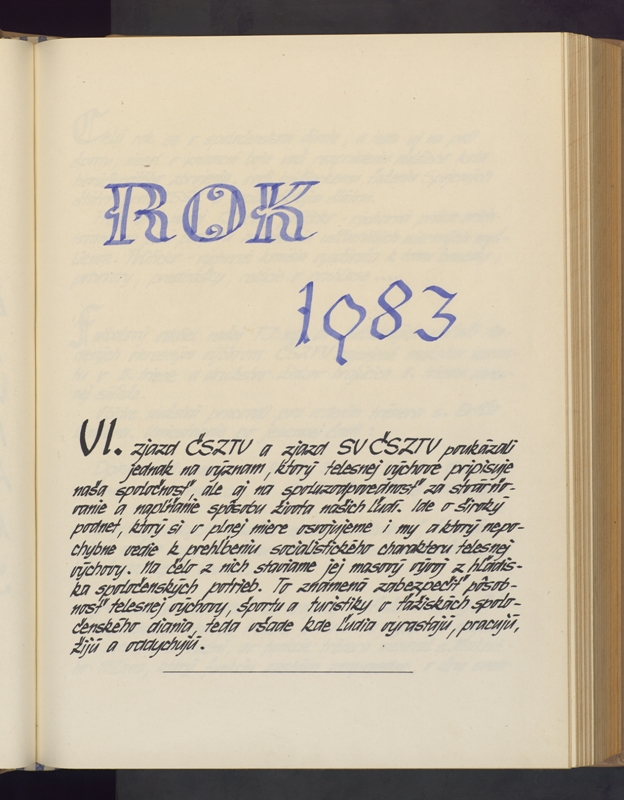 ROK
1983
VI. zjazd ČSZTV a zjazd SV ČSZTV poukázali
jednak na význam, ktorý telesnej výchove pripisuje
naša spoločnosť, ale aj na spoluzodpovednosť za stvárňo-
vanie a napĺňanie spôsobu života našich ľudí. Ide o široký
podnet, ktorý si v plnej miere osvojujeme i my a ktorý nepo-
chybne vedie k prehĺbeniu socialistického charakteru telesnej
výchovy. Na čelo z nich staviame jej masový vývoj z hľadis-
ka spoločenských potrieb. To znamená zabezpečiť pôsob-
nosť telesnej výchovy, športu a turistiky v ťažiskách spolo-
čenského diania, teda všade kde ľudia vyrastajú, pracujú,
žijú a oddychujú.